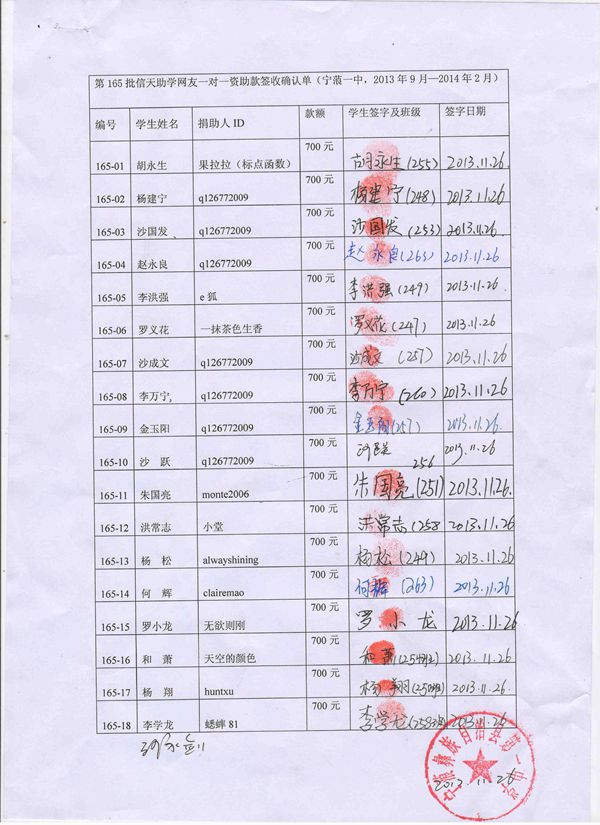 第 165 批信天助学网友一对一资助款签收确认单（宁蒗一中，2013 年 9 月—2014 年 2 月）
编号 学生姓名 捐助人 ID 款额 学生签字及班级 签字日期
165-01 胡永生 果拉拉（标点函数） 700 元 胡永生(255) 2013.11.26.
165-02 杨建宁 q126772009 700 元 杨建宁(248) 2013.11.26
165-03 沙国发 q126772009 700 元 沙国发(253) 2013.11.26
165-04 赵永良 q126772009 700 元 赵永良(263) 2013.11.26
165-05 李洪强 e 狐 700 元 李洪强(249) 2013.11.26
165-06 罗义花 一抹茶色生香 700 元 罗义花(247) 2013.11.26
165-07 沙成文 q126772009 700 元 沙成文(257) 2013.11.26
165-08 李万宁, q126772009 700 元 李万宁(260) 2013.11.26
165-09 金玉阳 q126772009 700 元 金玉阳(257) 2013.11.26.
165-10 沙 跃 q126772009 700 元 沙跃 256 2013.11.26
165-11 朱国亮 monte2006 700 元 朱国亮(251) 2013.11.26.
165-12 洪常志 小堂 700 元 洪常志(258 2013.11.26
165-13 杨 松 alwayshining 700 元 杨松(249) 2013.11.26
165-14 何 辉 clairemao 700 元 何辉(263) 2013.11.26
165-15 罗小龙 无欲则刚 700 元 罗小龙 2013.11.26
165-16 和 萧 天空的颜色 700 元 和萧(254班) 2013.11.26
165-17 杨 翔 huntxu 700 元 杨翔(250班) 2013.11.26
165-18 李学龙 蟋蟀 81 700 元 李学龙(258班) 2013.11.26
宁蒗彝族自治县第一中学
2013.11.26